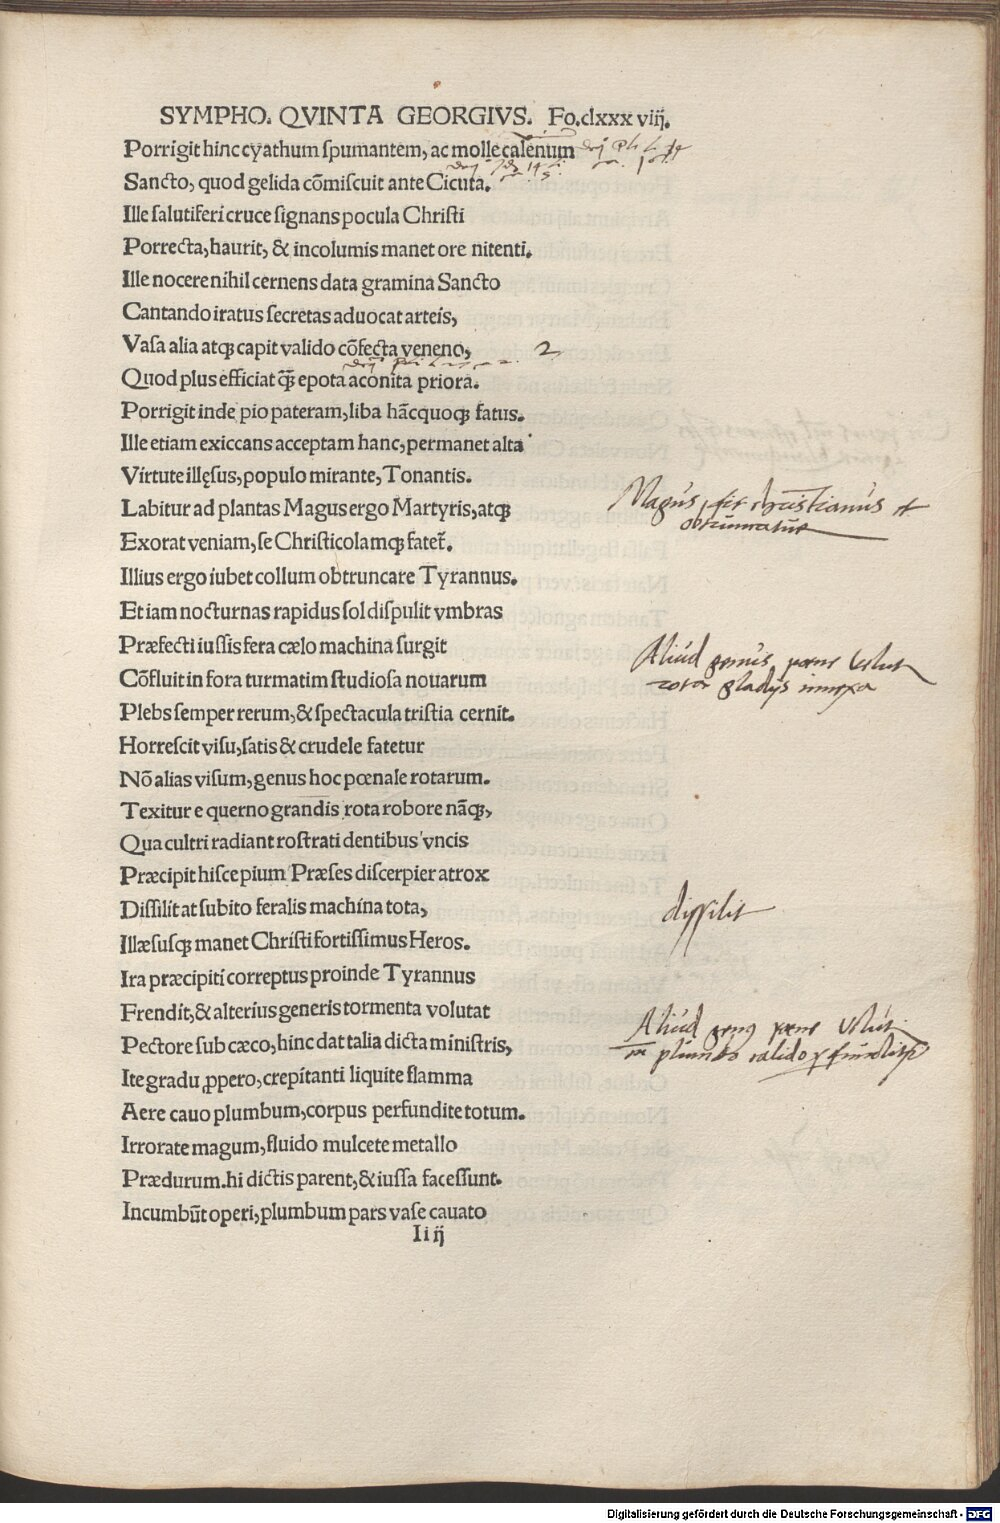 SYMPHO. QVINTA GEORGIVS. Fo.clxxxviij.
Porrigit hinc cyathum spumantem, ac molle calenum
Sancto, quod gelida cõmiscuit ante Cicuta.
Ille salutiferi cruce signans pocula Christi
Porrecta, haurit, & incolumis manet ore nitenti.
Ille nocere nihil cernens data gramina Sancto
Cantando iratus secretas aduocat arteis,
Vasa alia atqꝫ capit valido cõfecta veneno, 2
Quod plus efficiat q̃ꝫ epota aconita priora.
Porrigit inde pio pateram, liba hãcquoqꝫ fatus.
Ille etiam exiccans acceptam hanc, permanet alta
Virtute illęsus, populo mirante, Tonantis.
Labitur ad plantas Magus ergo Martyris, atqꝫ
Magus fit christianus et
obtruncatur
Exorat veniam, se Christicolamqꝫ fatet̃.
Illius ergo iubet collum obtruncare Tyrannus.
Et iam nocturnas rapidus sol dispulit vmbras
Præfecti iussis fera cælo machina surgit
Aliud genus pene
rota gladijs
Cõfluit in fora turmatim studiosa nouarum
Plebs semper rerum, & spectacula tristia cernit.
Horrescit visu, satis & crudele fatetur
Nõ alias visum, genus hoc pœnale rotarum.
Texitur e querno grandis rota robore nãqꝫ,
Qua cultri radiant rostrati dentibus vncis
Præcipit hisce pium Præses discerpier atrox
Dissilit at subito feralis machina tota,
dissilit
Illæsusqꝫ manet Christi fortissimus Heros.
Ira præcipiti correptus proinde Tyrannus
Frendit, & alterius generis tormenta volutat
Aliud genus pene
plumbo
Pectore sub cæco, hinc dat talia dicta ministris,
Ite gradu ꝓpero, crepitanti liquite flamma
Aere cauo plumbum, corpus perfundite totum.
Irrorate magum, fluido mulcete metallo
Prædurum. hi dictis parent, & iussa facessunt.
Incumbũt operi, plumbum pars vase cauato
Ii ij
Digitalisierung gefördert durch die Deutsche Forschungsgemeinschaft - DFG